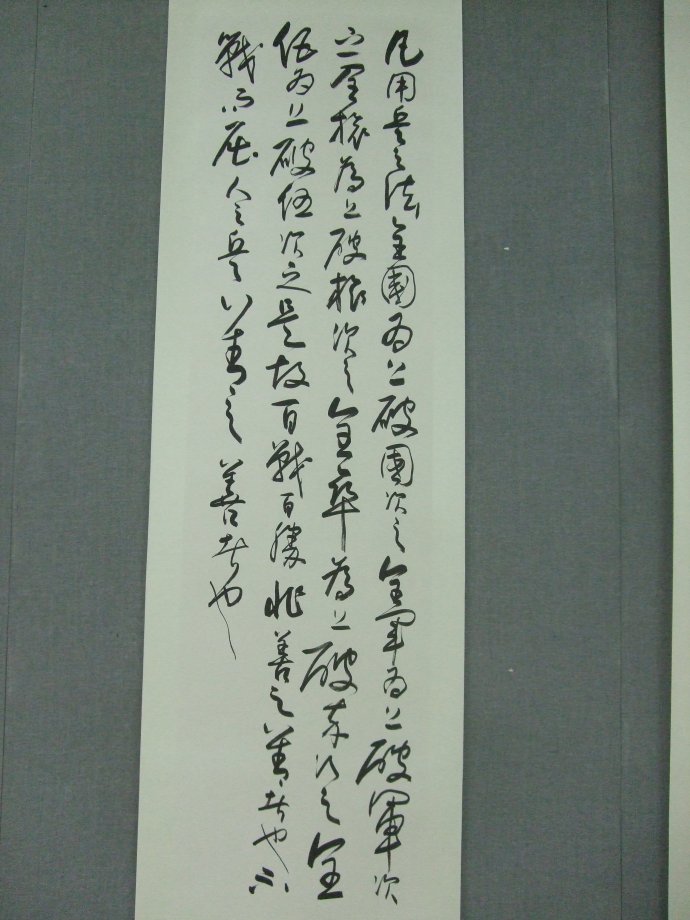 凡用兵之法全國為上破國次之全軍為上破軍次
之全旅為上破旅次之全卒為上破卒次之全
伍為上破伍次之是故百戰百勝非善之善者也不
戰而屈人之兵善之善者也